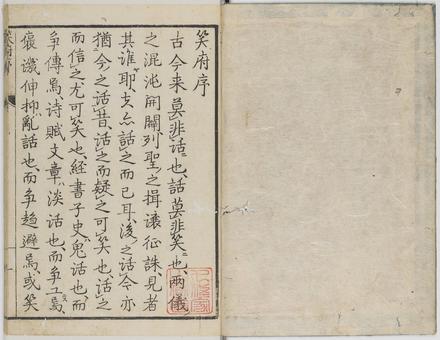 笑府序
古今来莫非話也話莫非笑也兩儀
之混沌開闢列聖之揖讓征誅見者
其誰耶夫亦話之而已耳後之話今亦
猶今之話昔話之而疑之可笑也話之
而信之尤可笑也經書子史鬼話也而
争傳焉詩賦文章淡話也而争工焉
褒譏伸抑亂話也而争趨避焉或笑
笑府序